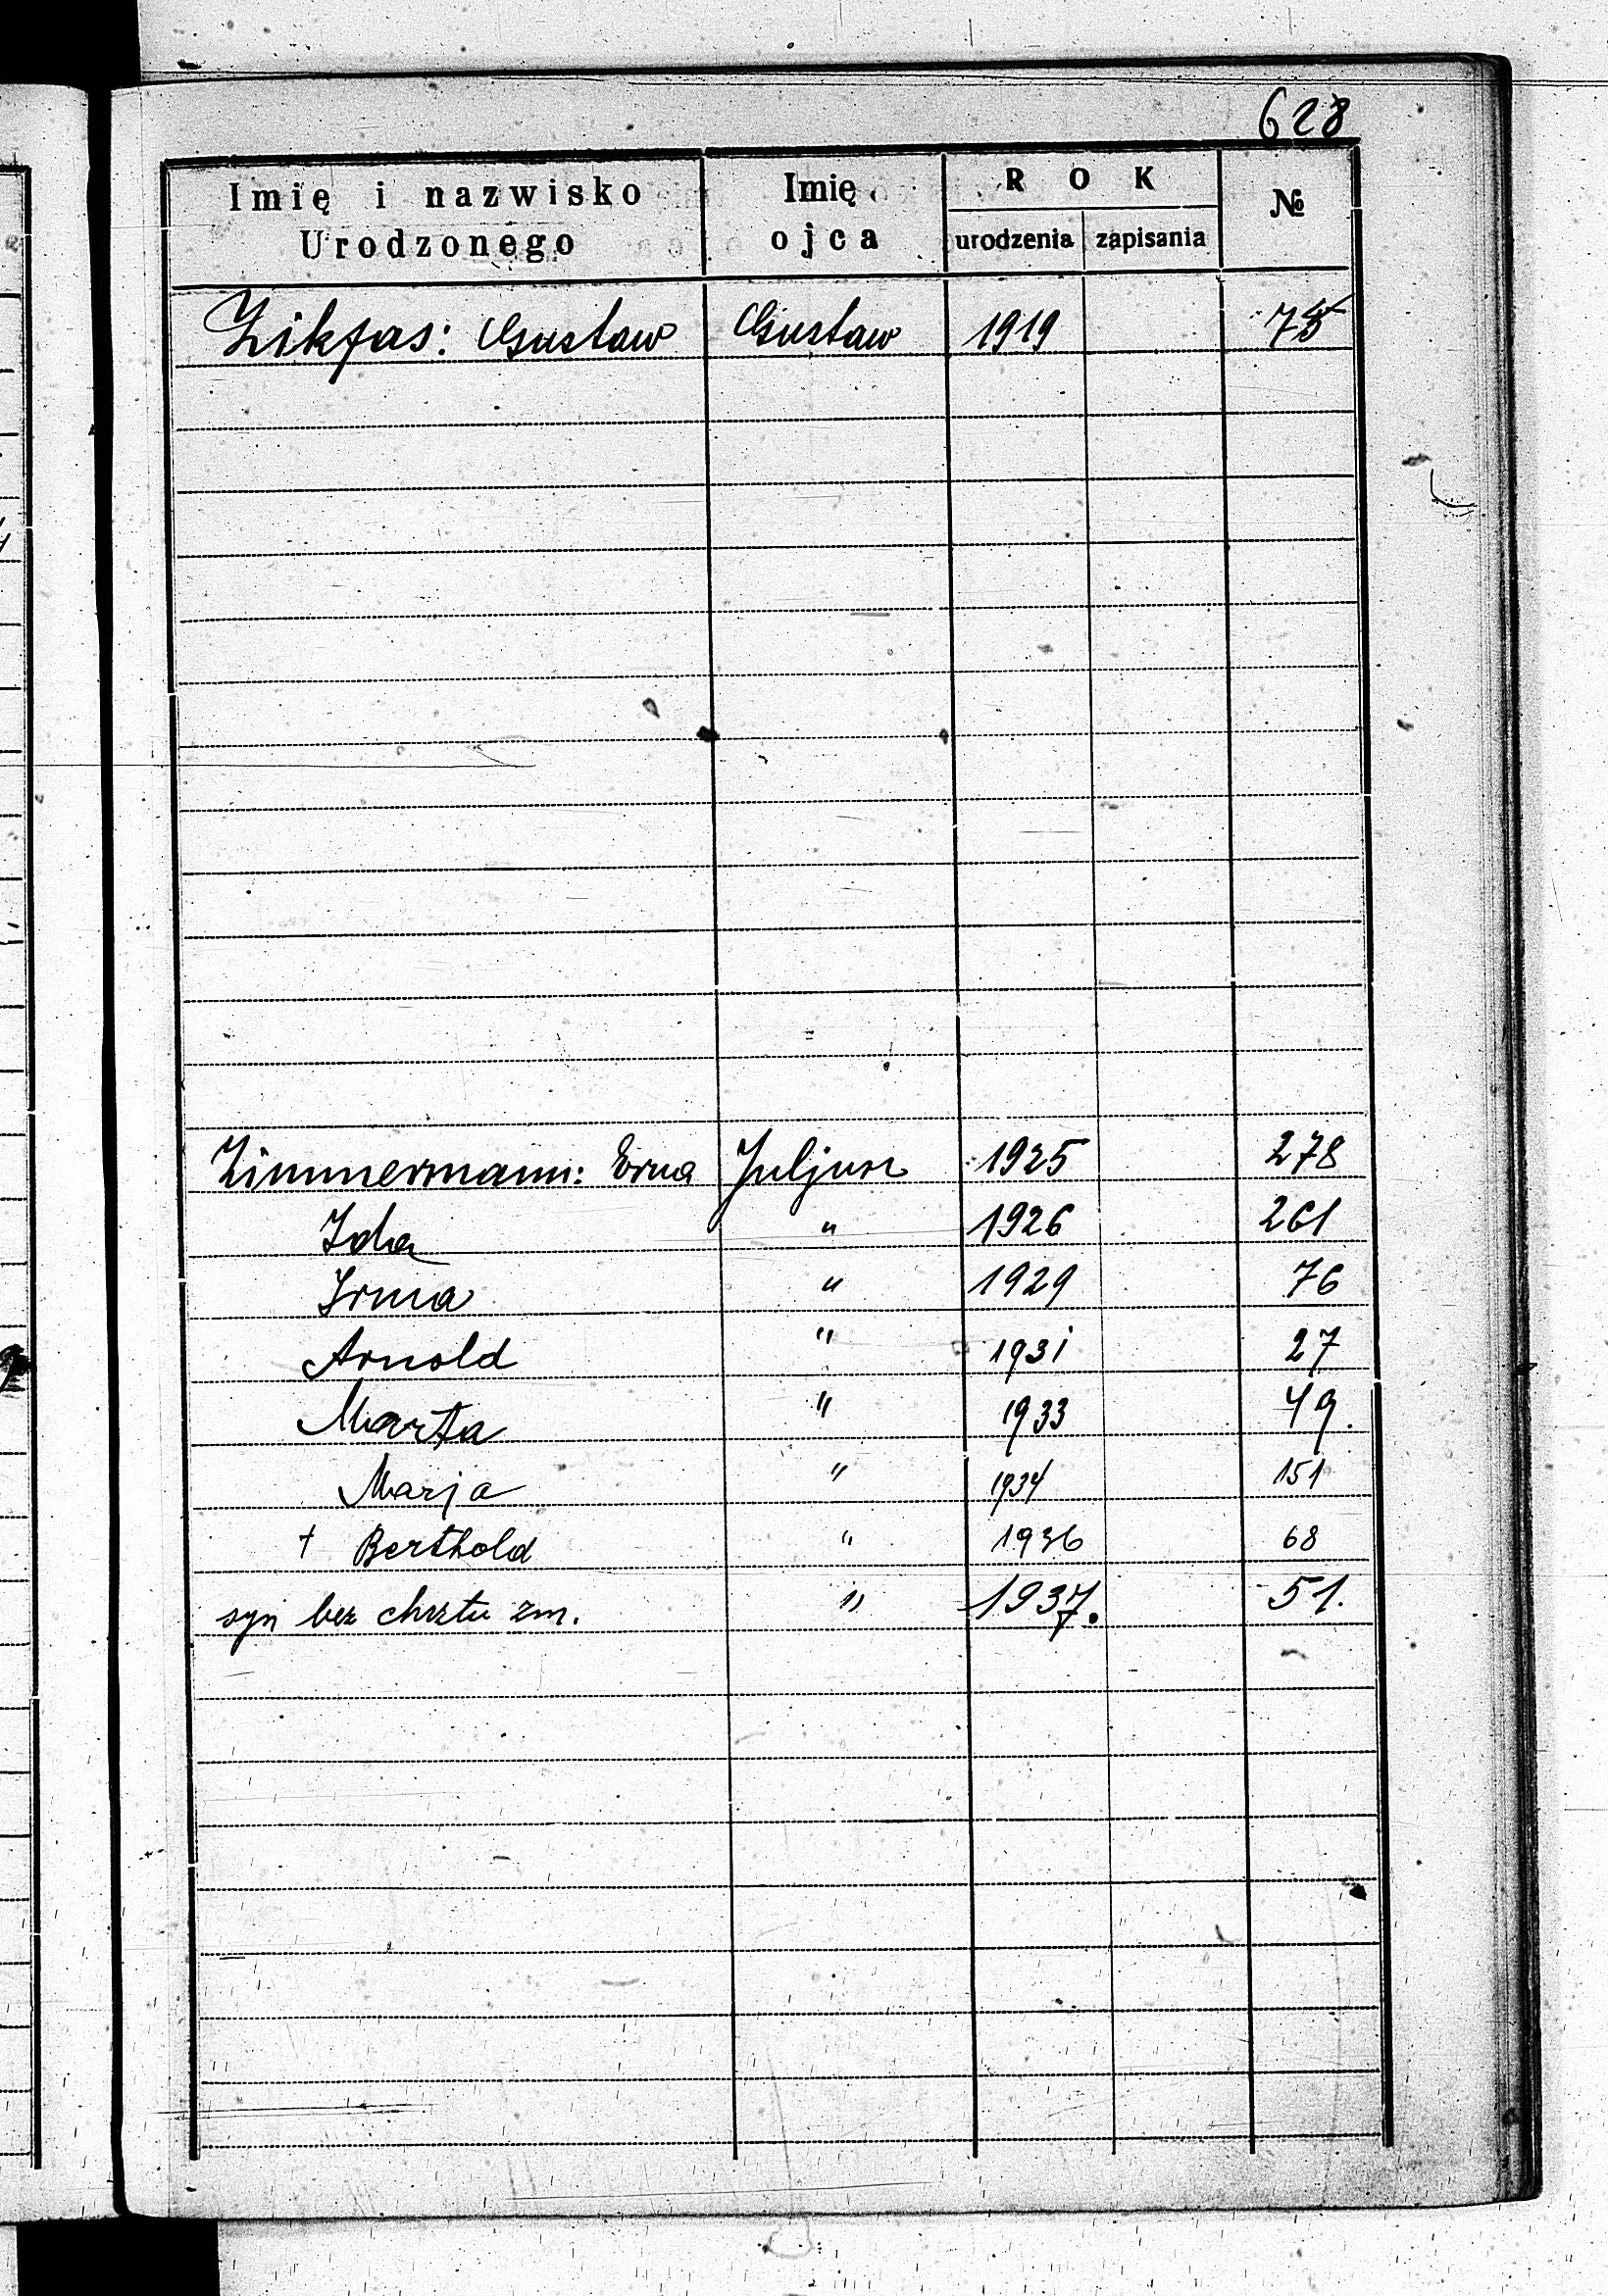 628
Imię i nazwisko Urodzonego Imię ojca ROK urodzenia zapisania №
Zikfas: Gustaw Gustaw 1919 75
Zimmermann: Erna Juljusz 1925 278
Ida " 1926 261
Irma " 1929 76
Arnold " 1931 27
Marta " 1933 49.
Marja " 1934 151
† Berthold " 1936 68
syn bez chrztu zm. " 1937. 51.